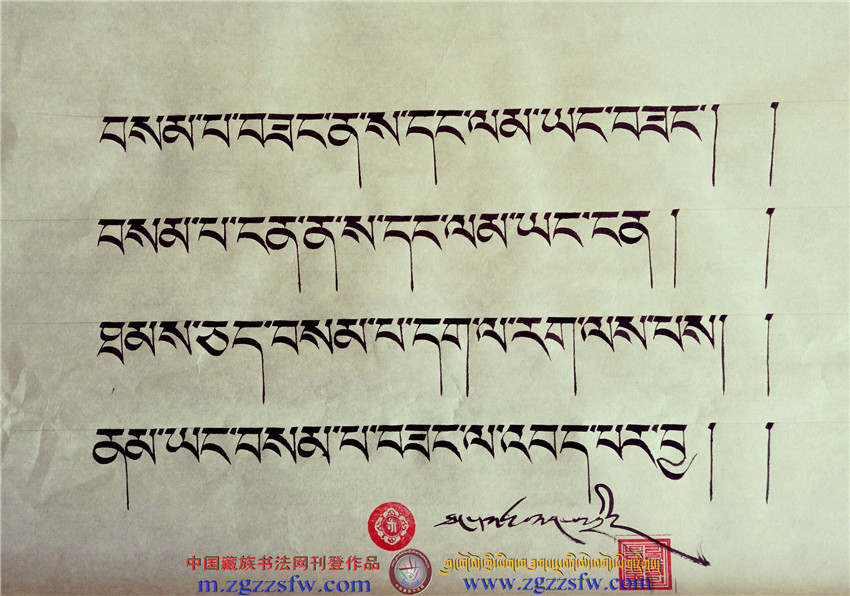 བསམ་པ་བཟང་ན་ས་དང་ལམ་ཡང་བཟང་། །
བསམ་པ་ངན་ན་ས་དང་ལམ་ཡང་ངན། །
ཐམས་ཅད་བསམ་པ་དག་ལ་རག་ལས་པས། །
ནམ་ཡང་བསམ་པ་བཟང་ལ་འབད་པར་བྱ། །
中国藏族书法网刊登作品
m.zgzzsfw.com
www.zgzzsfw.com